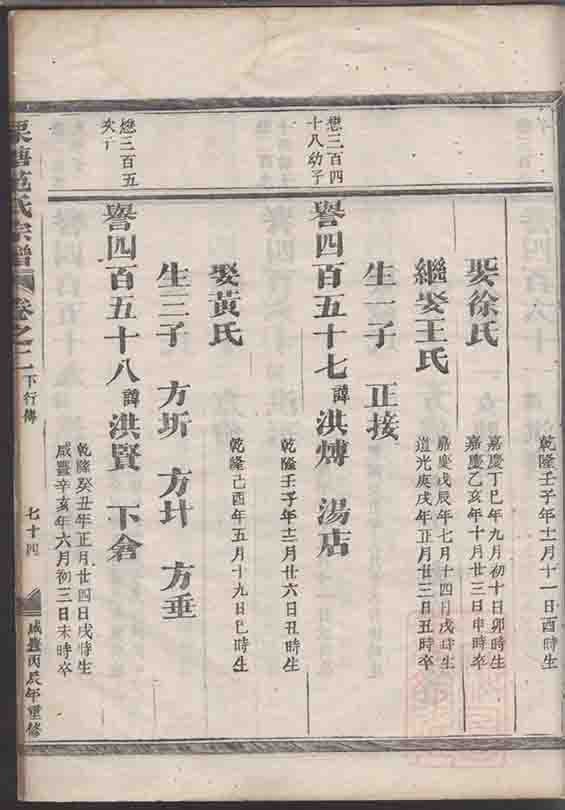 乾隆壬子年十一月十一日酉時生
娶徐氏
嘉慶丁巳年九月初十日卯時生
嘉慶乙亥年十月廿三日申時卒
繼娶王氏
嘉慶戊辰年七月十四日戌時生
道光庚戌年正月廿三日丑時卒
生一子 正接
懋三百四
十八幼子
譽四百五十七諱洪煿 湯店
乾隆壬子年十二月廿六日丑時生
娶黃氏
乾隆己酉年五月十九日巳時生
生三子 方圻 方圤 方垂
懋三百五
譽四百五十八諱洪賢 下倉
乾隆癸丑年正月廿四日戌時生
咸豐辛亥年六月初三日未時卒
范氏宗譜 卷之二 下行傳 七十四 咸豐丙辰年重修